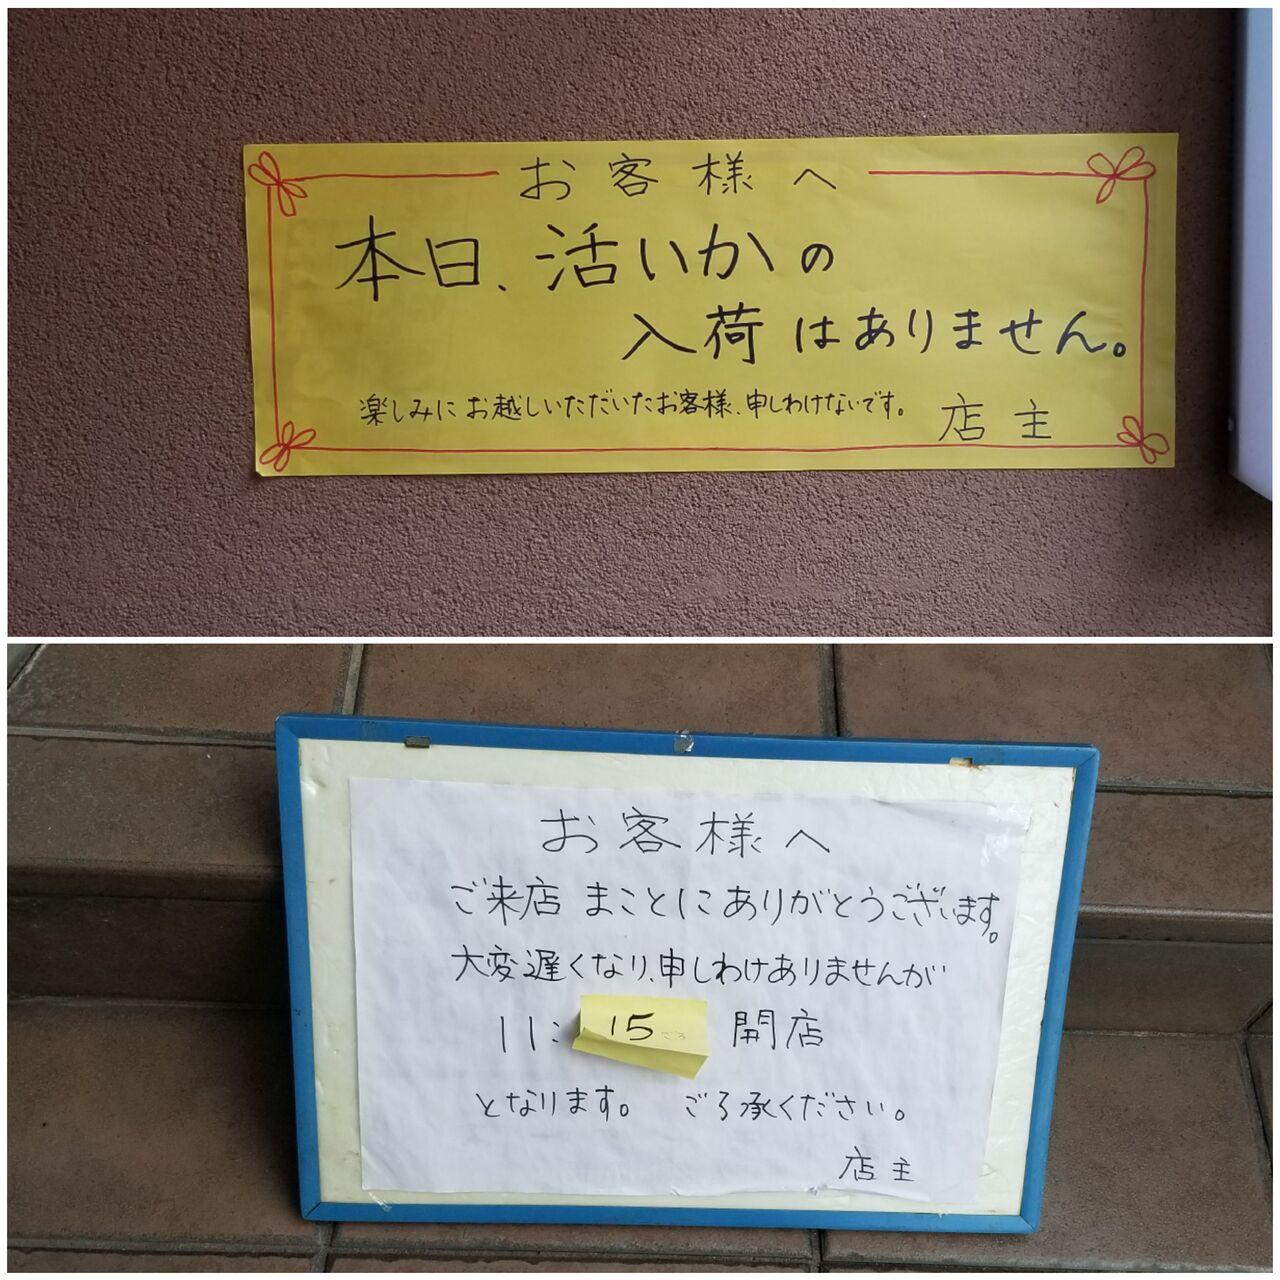 お客様へ
本日、活いかの
入荷はありません。
楽しみにお越しいただいたお客様、申しわけないです。
店主
お客様へ
ご来店まことにありがとうございます。
大変遅くなり、申しわけありませんが
11:15ごろ 開店
となります。 ごろ承ください。
店主